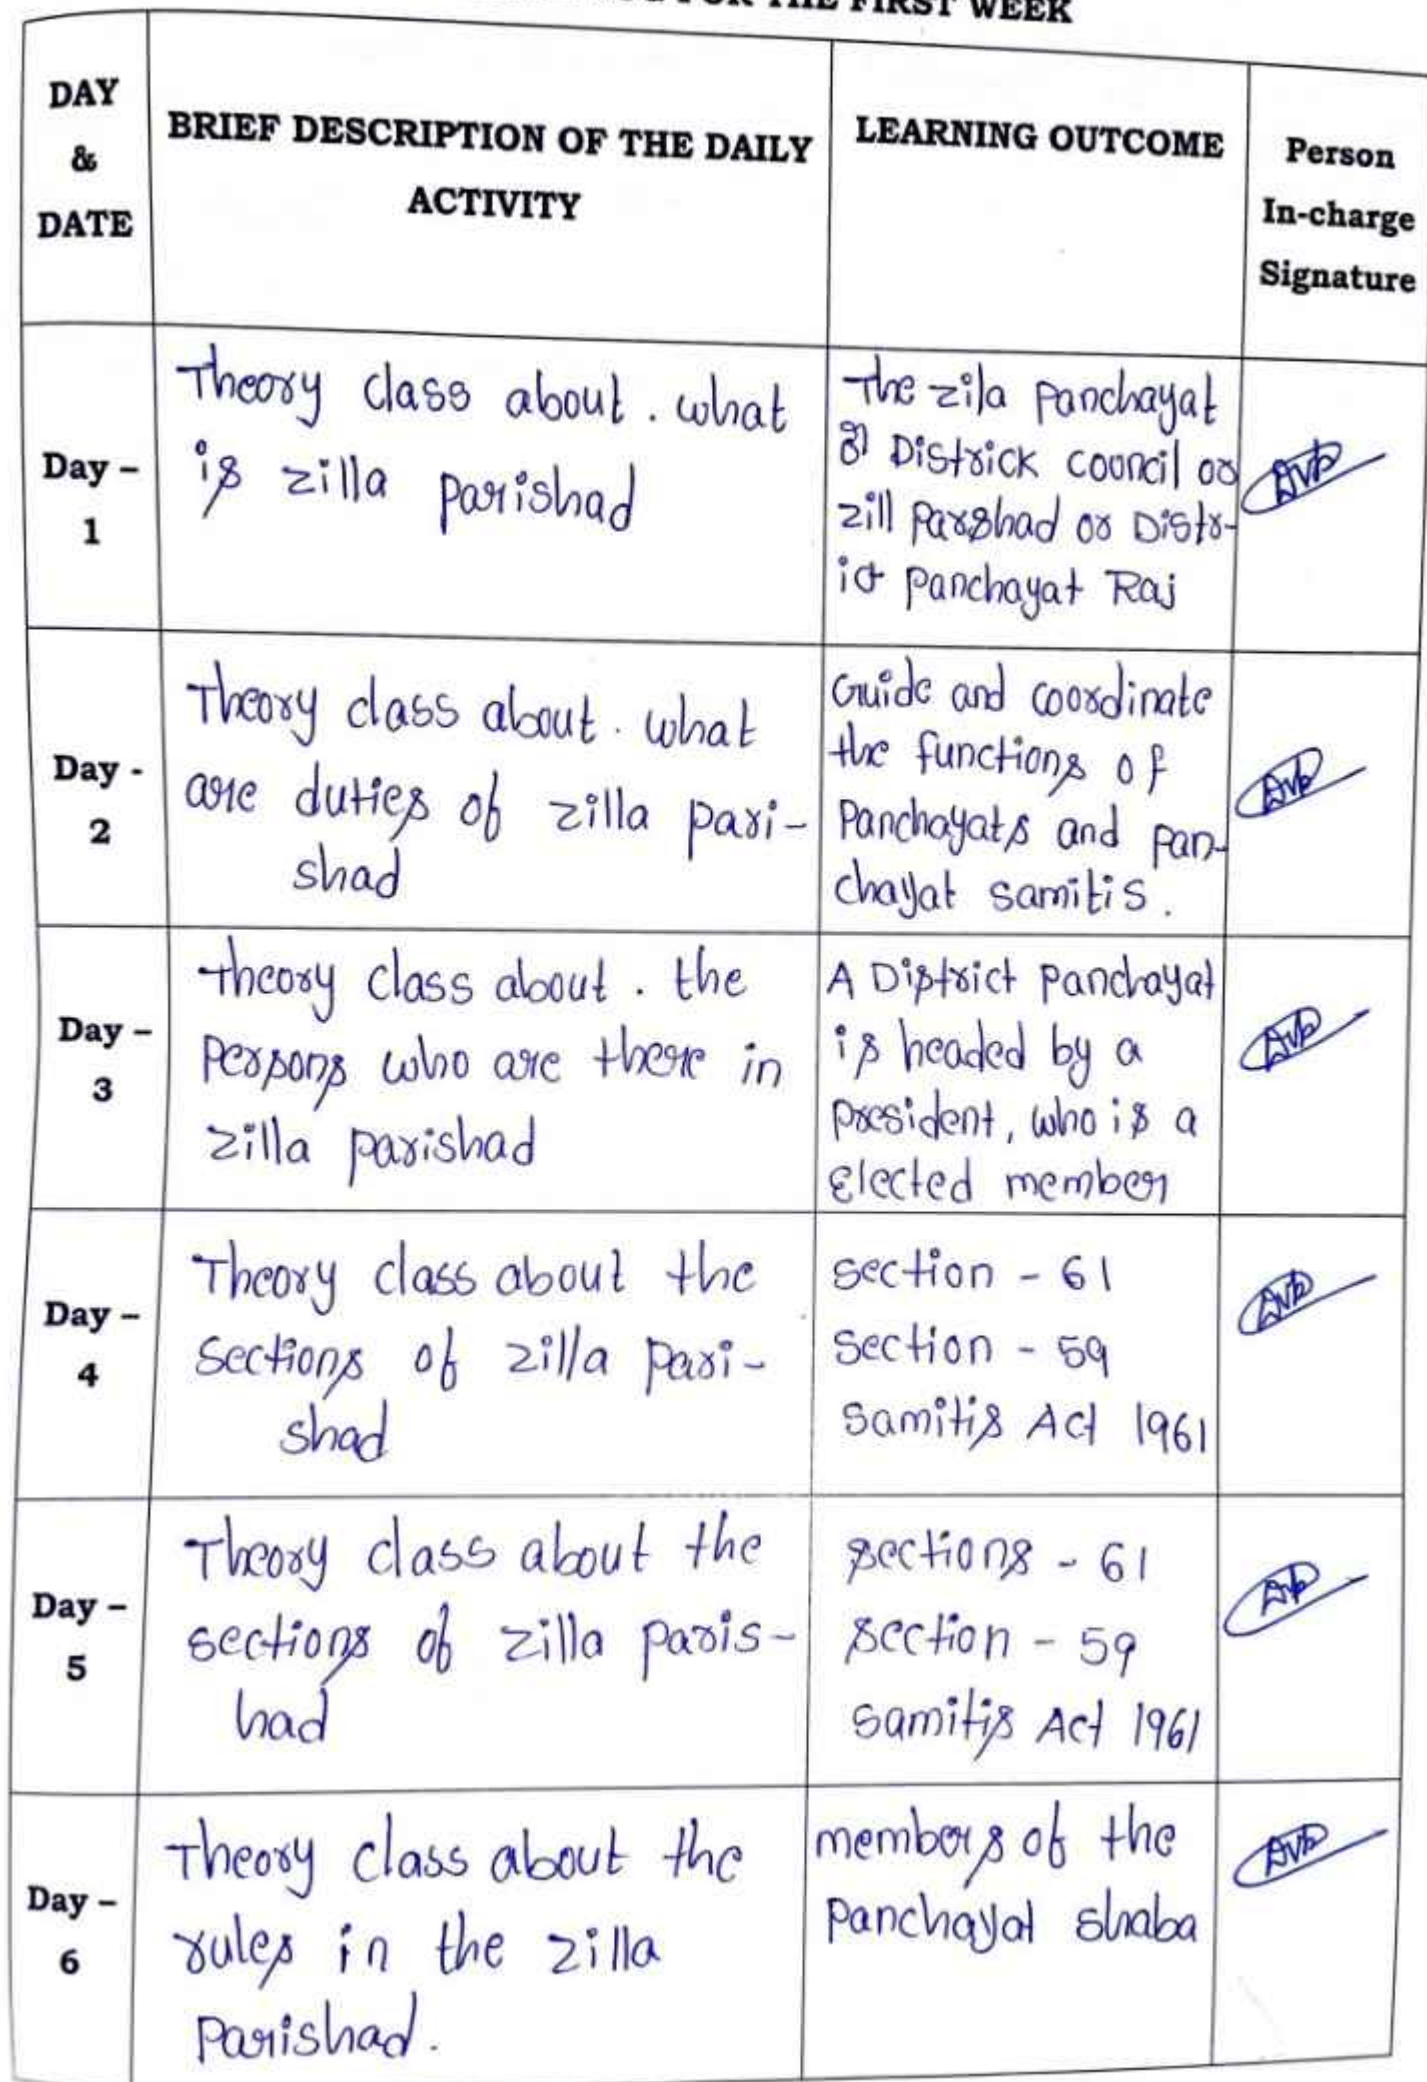 FOR THE FIRST WEEK
DAY
&
DATE
BRIEF DESCRIPTION OF THE DAILY
ACTIVITY
LEARNING OUTCOME
Person
In-charge
Signature
Day –
1
Theory class about . what
is zilla parishad
The zila panchayat
or District council or
zill Parshad or Distr-
ict panchayat Raj
Day -
2
Theory class about . what
are duties of zilla pari-
shad
Guide and coordinate
the functions of
Panchayats and pan-
chayat samitis.
Day –
3
Theory class about . the
persons who are there in
zilla parishad
A District panchayat
is headed by a
president, who is a
Elected member
Day –
4
Theory class about the
sections of zilla pari-
shad
section - 61
section - 59
samitis Act 1961
Day –
5
Theory class about the
sections of zilla paris-
had
sections - 61
section - 59
samitis Act 1961
Day –
6
Theory class about the
rules in the zilla
Parishad.
members of the
panchayat shaba